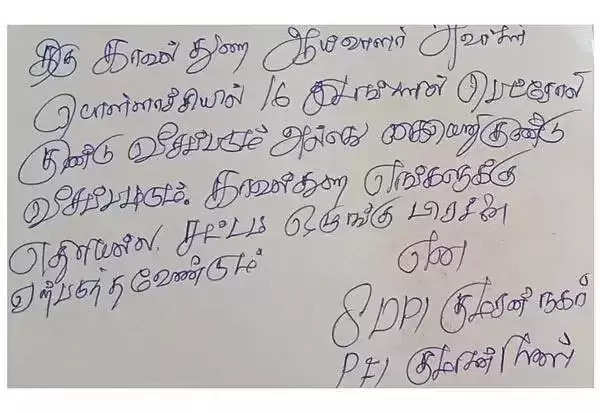 திரு காவல் துணை ஆய்வாளர் அவர்கள்
பொள்ளாச்சியில் 16 பெட்ரோல்
குண்டு வீசப்படும் அல்லது கையெறிகுண்டு
வீசப்படும். காவல்துறை எங்களுக்கு
சட்டம் ஒழுங்கு
வேண்டும் என
SDPI குமரன் நகர்
PFI குமரன் நகர்